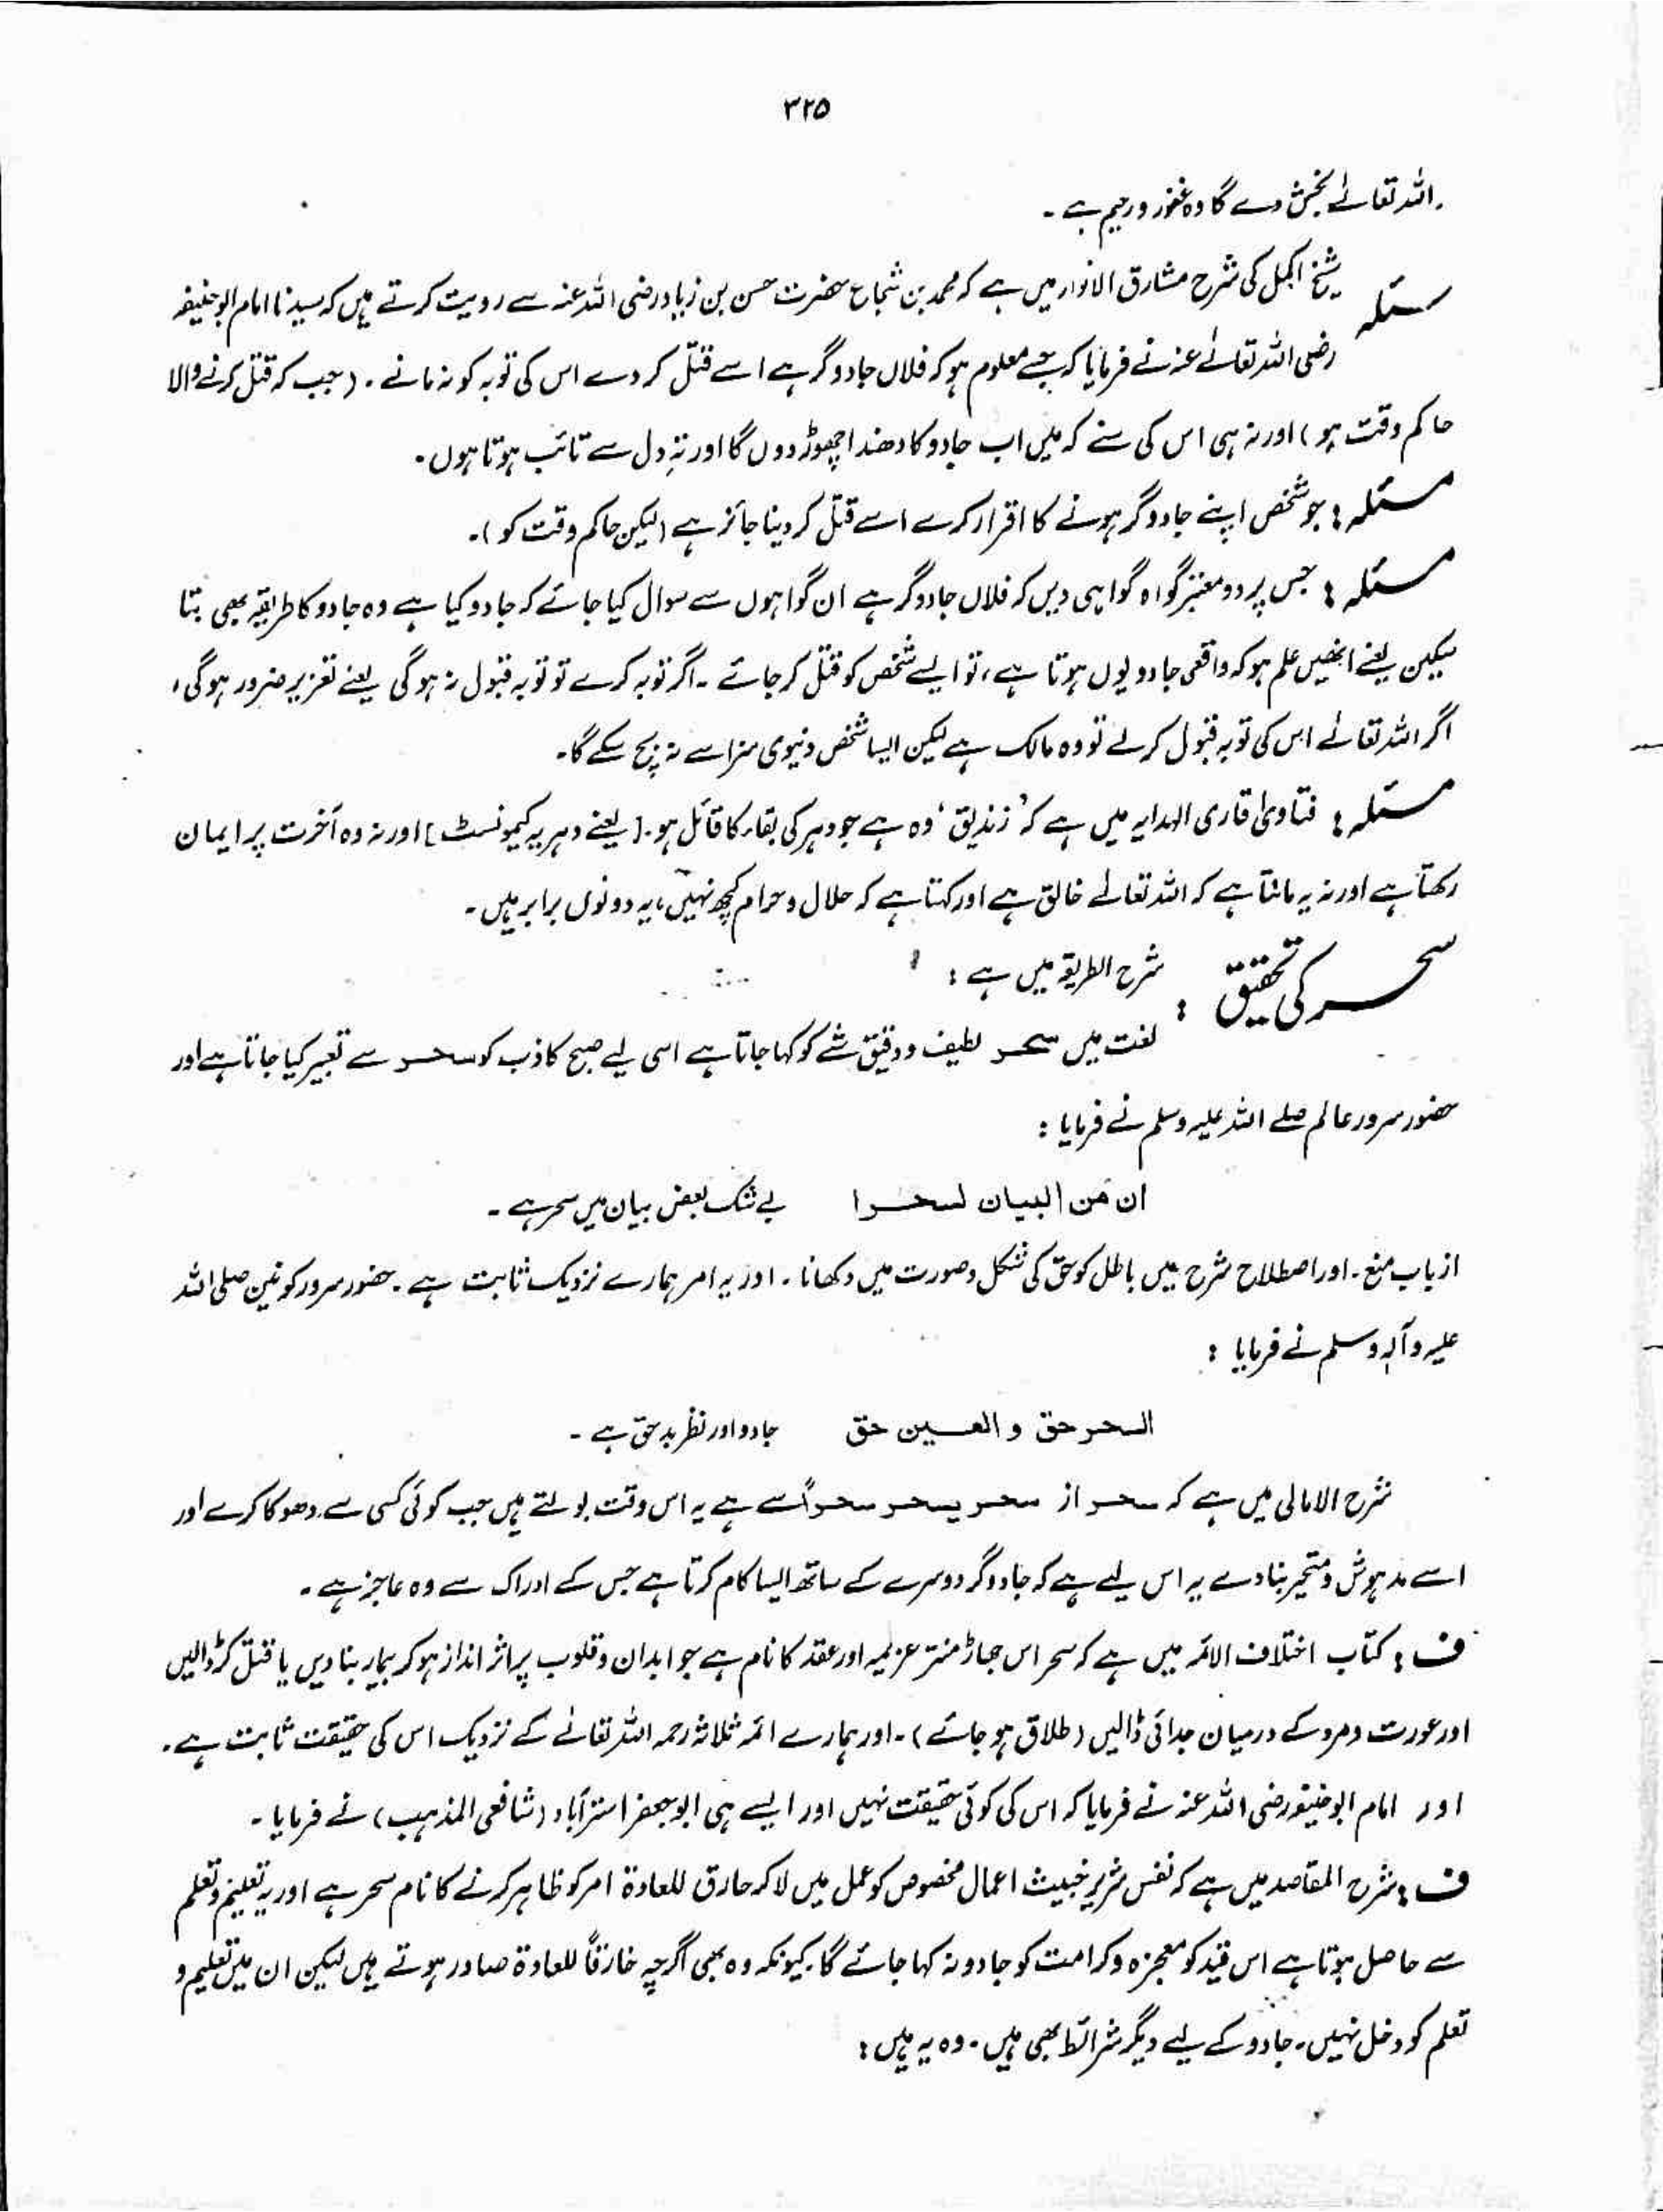 ۳۲۵
اللہ تعالےٰ بخش دے گا وہ غفور و رحیم ہے ۔
مسئلہ شیخ اکمل کی شرح مشارق الانوار میں ہے کہ محمد بن شجاع حضرت حسن بن زیاد رضی اللہ عنہ سے رویت کرتے ہیں کہ سیدنا امام ابوحنیفہ
رضی اللہ تعالےٰ عنہ نے فرمایا کہ جسے معلوم ہو کہ فلاں جادوگر ہے اسے قتل کر دے اس کی توبہ کو نہ مانے ۔ (جب کہ قتل کرنے والا
حاکم وقت ہو) اور نہ ہی اس کی سنے کہ میں اب جادو کا دھندا چھوڑ دوں گا اور تہِ دل سے تائب ہوتا ہوں ۔
مسئلہ : جو شخص اپنے جادوگر ہونے کا اقرار کرے اسے قتل کر دینا جائز ہے (لیکن حاکم وقت کو) ۔
مسئلہ : جس پر دو معتبر گواہ گواہی دیں کہ فلاں جادوگر ہے ان گواہوں سے سوال کیا جائے کہ جادو کیا ہے وہ جادو کا طریقہ بھی بتا
سکیں یعنے انھیں علم ہو کہ واقعی جادو یوں ہوتا ہے ، تو ایسے شخص کو قتل کر جائے ۔ اگر توبہ کرے تو توبہ قبول نہ ہوگی یعنے تعزیر ضرور ہوگی ،
اگر اللہ تعالےٰ اس کی توبہ قبول کر لے تو وہ مالک ہے لیکن ایسا شخص دنیوی سزا سے نہ بچ سکے گا ۔
مسئلہ : فتاویٰ قاری الہدایہ میں ہے کہ ’زندیق‘ وہ ہے جو دہر کی بقاء کا قائل ہو ۔ [یعنے دہریہ کیمونسٹ] اور نہ وہ آخرت پر ایمان
رکھتا ہے اور نہ یہ مانتا ہے کہ اللہ تعالےٰ خالق ہے اور کہتا ہے کہ حلال و حرام کچھ نہیں ، یہ دونوں برابر ہیں ۔
سحر کی تحقیق : شرح الطریقہ میں ہے :
لغت میں سحر لطیف و دقیق شے کو کہا جاتا ہے اسی لیے صبح کاذب کو سحر سے تعبیر کیا جاتا ہے اور
حضور سرور عالم صلے اللہ علیہ وسلم نے فرمایا :
ان من البیان لسحرا بے شک بعض بیان میں سحر ہے ۔
از باب منع ۔ اور اصطلاح شرح میں باطل کو حق کی شکل و صورت میں دکھانا ۔ اور یہ امر ہمارے نزدیک ثابت ہے ۔ حضور سرور کونین صلی اللہ
علیہ وآلہ وسلم نے فرمایا :
السحر حق و العین حق جادو اور نظرِ بد حق ہے ۔
شرح الامالی میں ہے کہ سحر از سحر یسحر سحراً سے ہے یہ اس وقت بولتے ہیں جب کوئی کسی سے دھوکا کرے اور
اسے مدہوش و متحیر بنا دے یہ اس لیے ہے کہ جادوگر دوسرے کے ساتھ ایسا کام کرتا ہے جس کے ادراک سے وہ عاجز ہے ۔
ف : کتاب اختلاف الائمہ میں ہے کہ سحر اس جہاڑ منتر عزیمہ اور عقد کا نام ہے جو ابدان و قلوب پر اثر انداز ہو کر بیمار بنا دیں یا قتل کر ڈالیں
اور عورت و مرد کے درمیان جدائی ڈالیں (طلاق ہو جائے) ۔ اور ہمارے ائمہ ثلاثہ رحمہ اللہ تعالےٰ کے نزدیک اس کی حقیقت ثابت ہے ۔
اور امام ابو حنیفہ رضی اللہ عنہ نے فرمایا کہ اس کی کوئی حقیقت نہیں اور ایسے ہی ابو جعفر استرآباد (شافعی المذہب) نے فرمایا ۔
ف : شرح المقاصد میں ہے کہ نفس شریر خبیث اعمال مخصوص کو عمل میں لا کر خارق للعادۃ امر کو ظاہر کرنے کا نام سحر ہے اور یہ تعلیم و تعلم
سے حاصل ہوتا ہے اس قید کو معجزہ و کرامت کو جادو نہ کہا جائے گا کیونکہ وہ بھی اگرچہ خارقاً للعادۃ صادر ہوتے ہیں لیکن ان میں تعلیم و
تعلم کو دخل نہیں ۔ جادو کے لیے دیگر شرائط بھی ہیں ۔ وہ یہ ہیں :